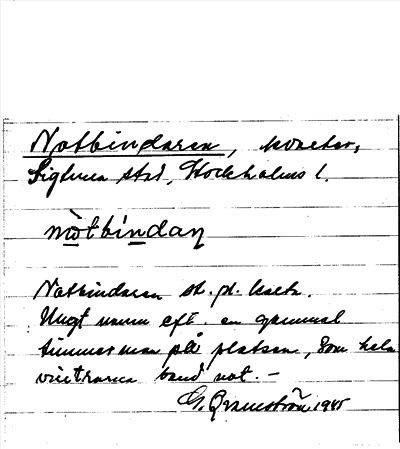 Notbindaren, kvarter,
Sigtuna stad, Stockholms l.
nòtbindaɳ
Notbindaren st. pl. kart.
Ungt namn eft. en gammal
timmerman på platsen, som hela
vintrarna band not. –
G. Qvarnström 1945